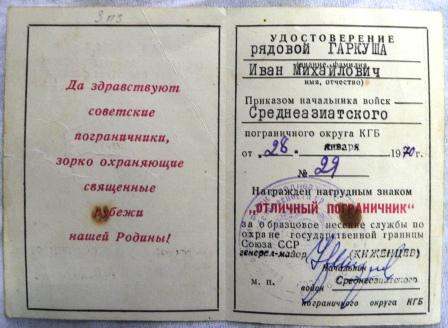 3 пз
Да здравствуют
советские
пограничники,
зорко охраняющие
священные
рубежи
нашей Родины!
УДОСТОВЕРЕНИЕ
рядовой ГАРКУША
(звание, фамилия,
Иван Михайлович
имя, отчество)
Приказом начальника войск
Среднеазиатского
пограничного округа КГБ
от „28„ января 1970г.
№ 29
Награжден нагрудным знаком
"ОТЛИЧНЫЙ ПОГРАНИЧНИК"
за образцовое несение службы по
охране государственной границы
Союза ССР
генерал-майор (КИЖЕНЦЕВ)
Начальник
м. п. войск Среднеазиатского
пограничного округа КГБ